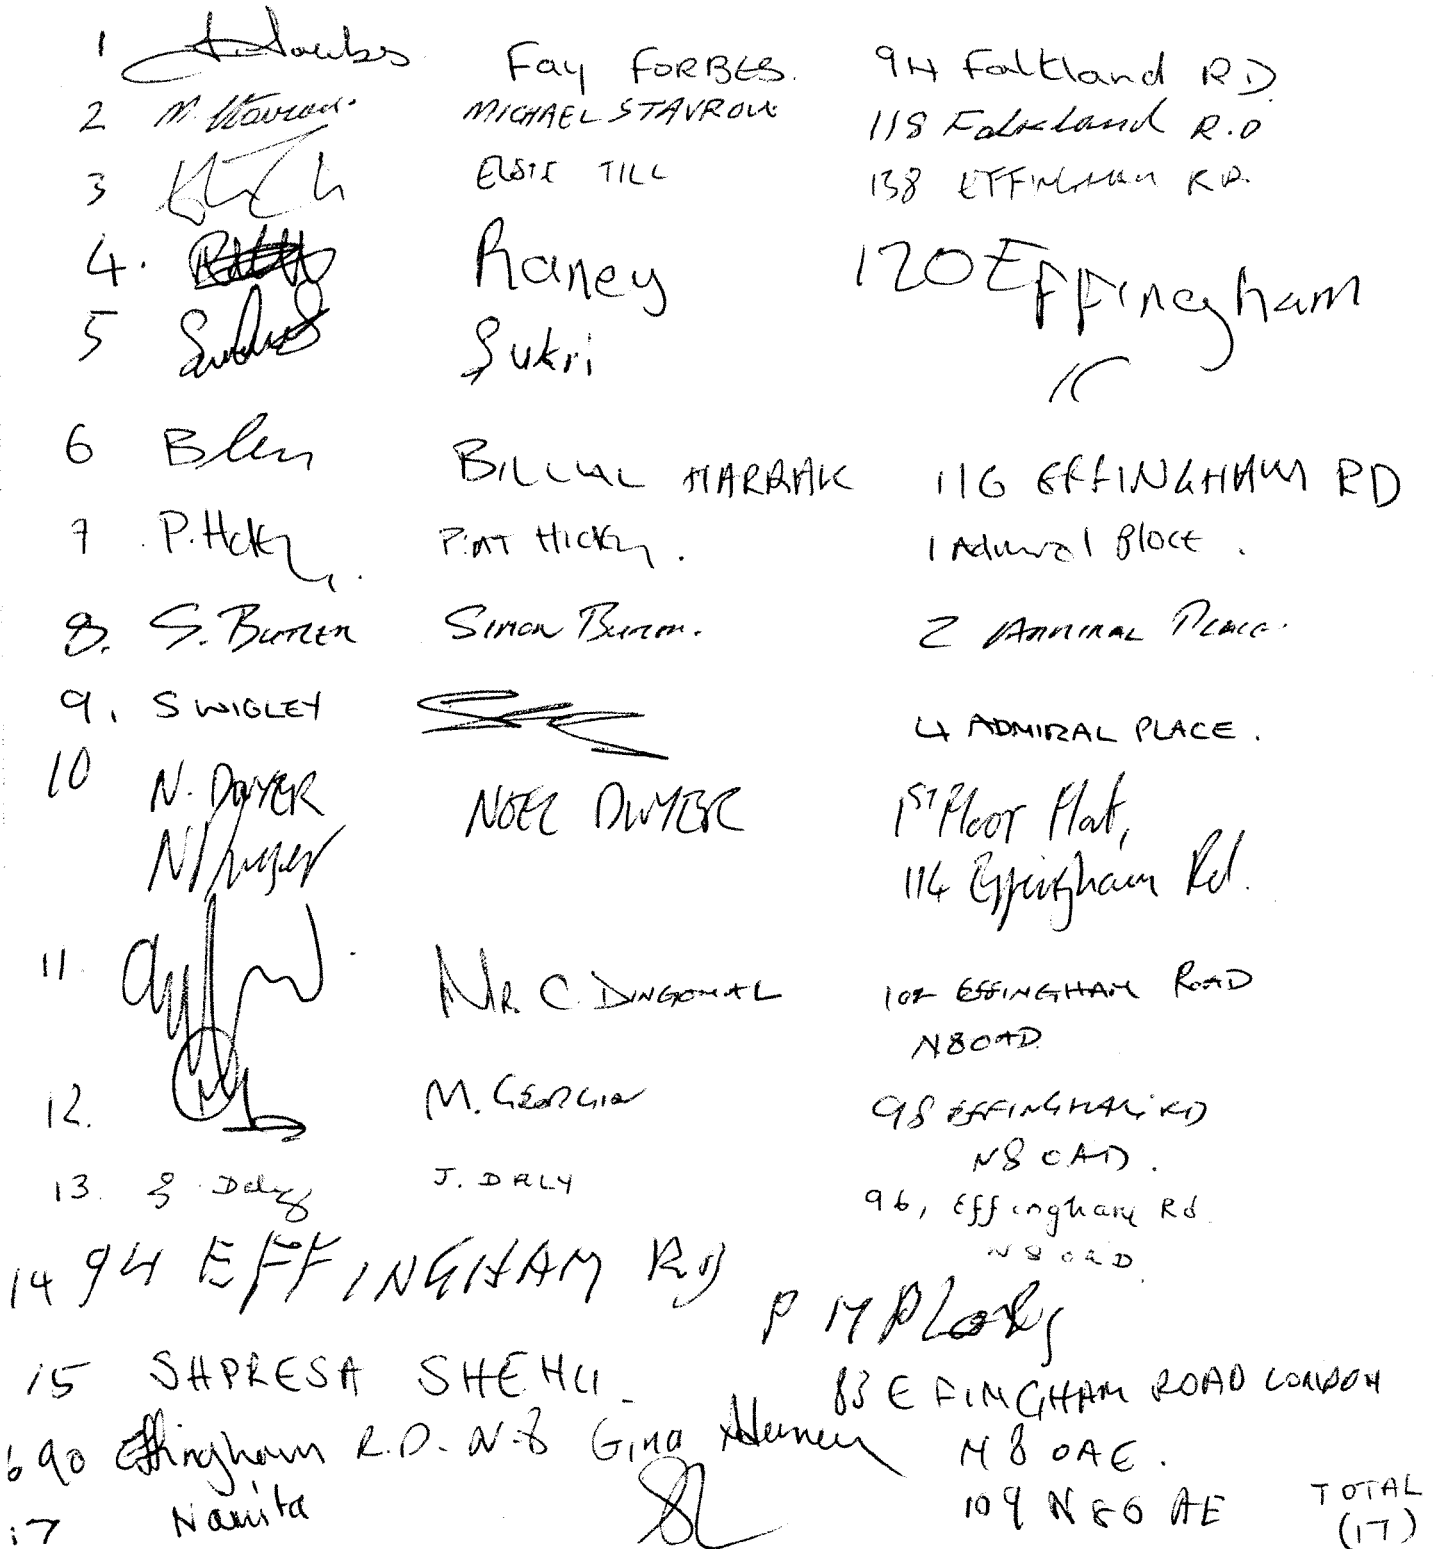 1 Fay FORBES. 94 Falkland RD
2 M. Stavrou. MICHAEL STAVROU 118 Falkland R.D
3 ELSIE TILL 138 EFFINGHAM RD.
4. Raney 120 Effingham
5 Sukri
6 BILLAL HARRAK 116 EFFINGHAM RD
7 P. Hickey PAT HICKEY. 1 Admiral Place.
8. S. BUTLER SIMON BUTLER. 2 ADMIRAL PLACE.
9. S WIGLEY 4 ADMIRAL PLACE.
10 N. DWYER NOEL DWYER 1ST Floor Flat,
N Dwyer 114 Effingham Rd.
11 MR. C. DINGOMAL 102 EFFINGHAM ROAD
N8 0AD.
12. M. GEORGIOU 98 EFFINGHAM RD
N8 0AD.
13. J. Daly J. DALY 96, Effingham Rd.
N8 0AD.
14 94 EFFINGHAM RD P M
15 SHPRESA SHEHU 83 EFINGHAM ROAD LONDON
N8 0AE.
16 90 Effingham R.D. N.8 Gina
17 Namita 109 N80 AE TOTAL
(17)